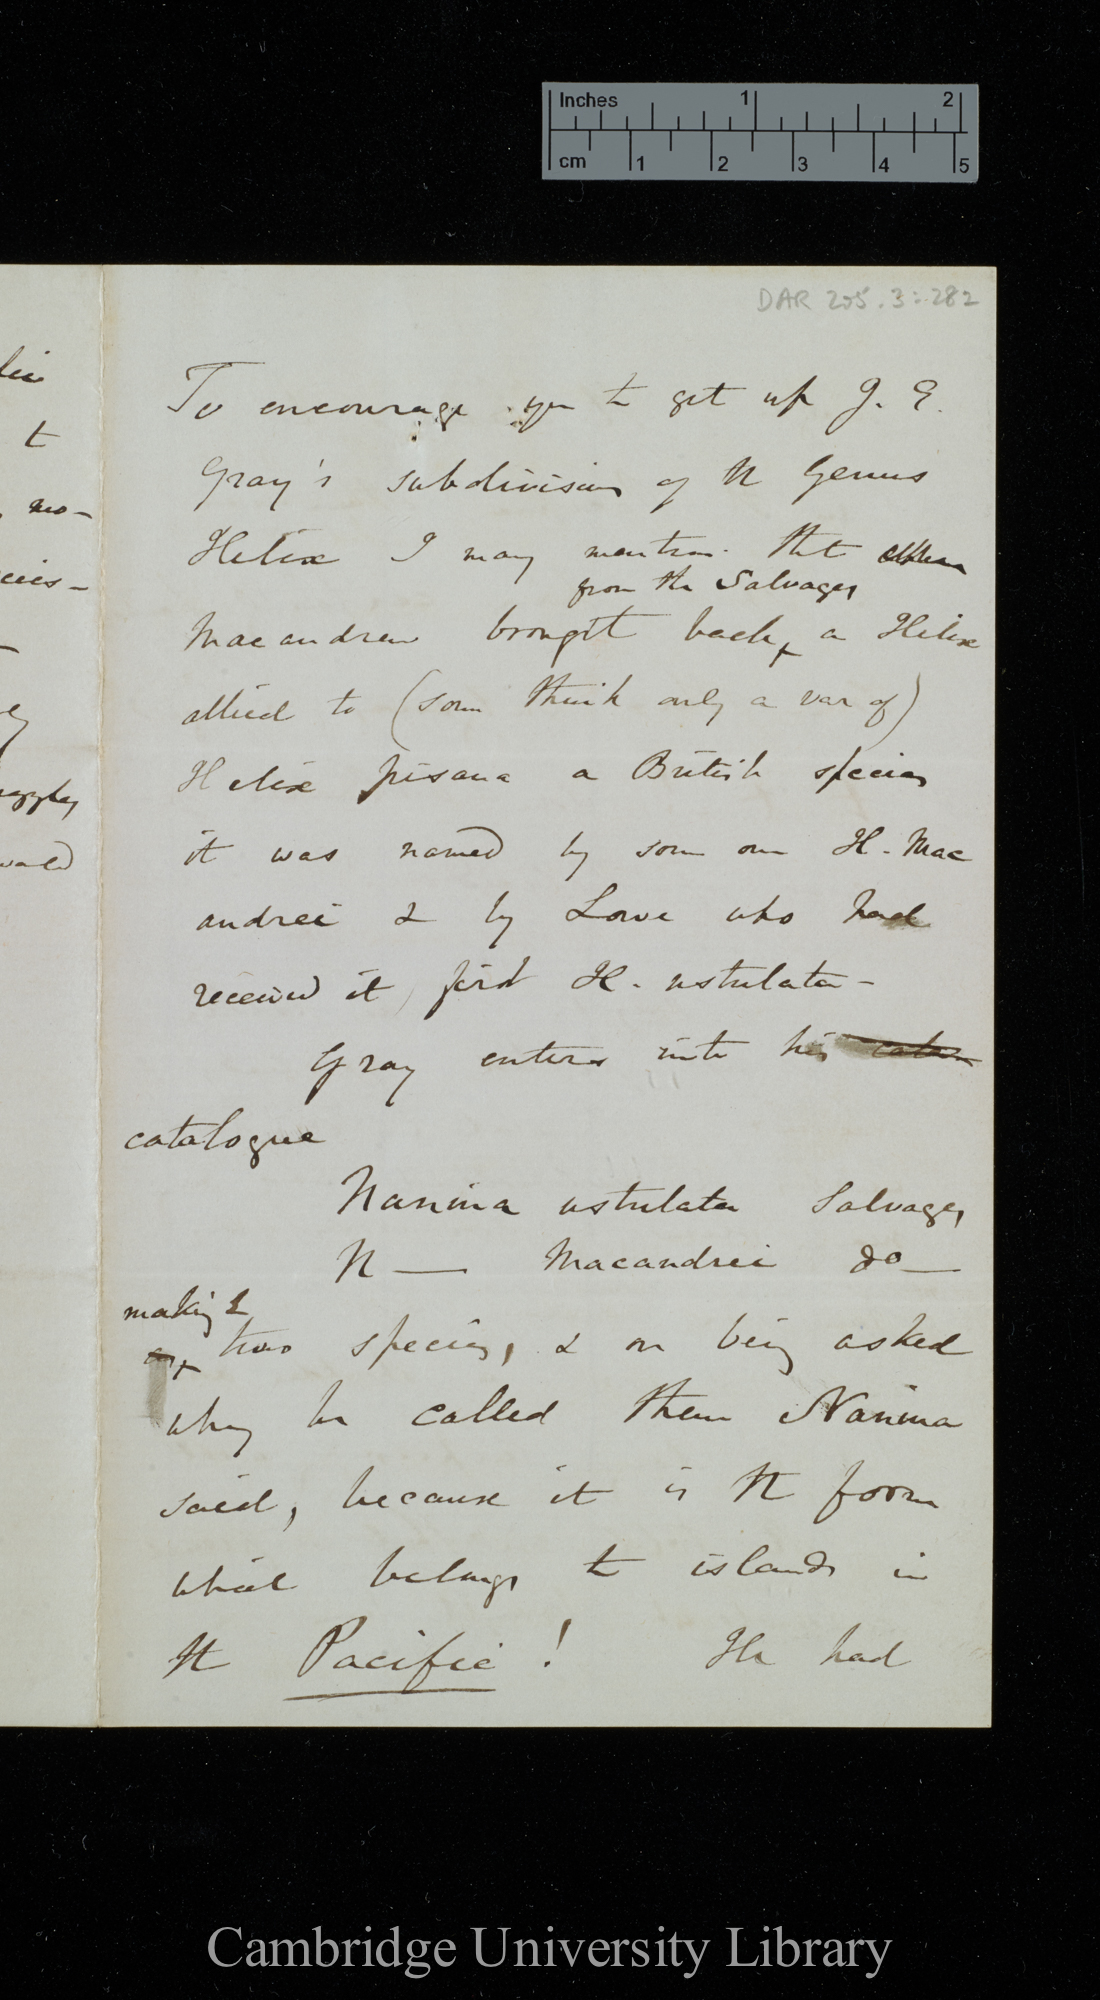 Inches 1 2
cm 1 2 3 4 5
DAR 205.3:282
t
mo-
cies-
would
To encourage you to get up J. E.
Gray's subdivisions of the Genus
Helix I may mention that
from the Salvages
Macandrew brought back, a Helix
allied to (some think only a var of)
Helix pisana a British species
it was named by some one H. Mac
andrei & by Lowe who had
received it first H. ustulata -
Gray enters into his
catalogue
Nanina ustulata Salvages
N — Macandrei do —
making 2
two species, & on being asked
why he called them Nanina
said, because it is the form
which belongs to islands in
the Pacific! He had
Cambridge University Library